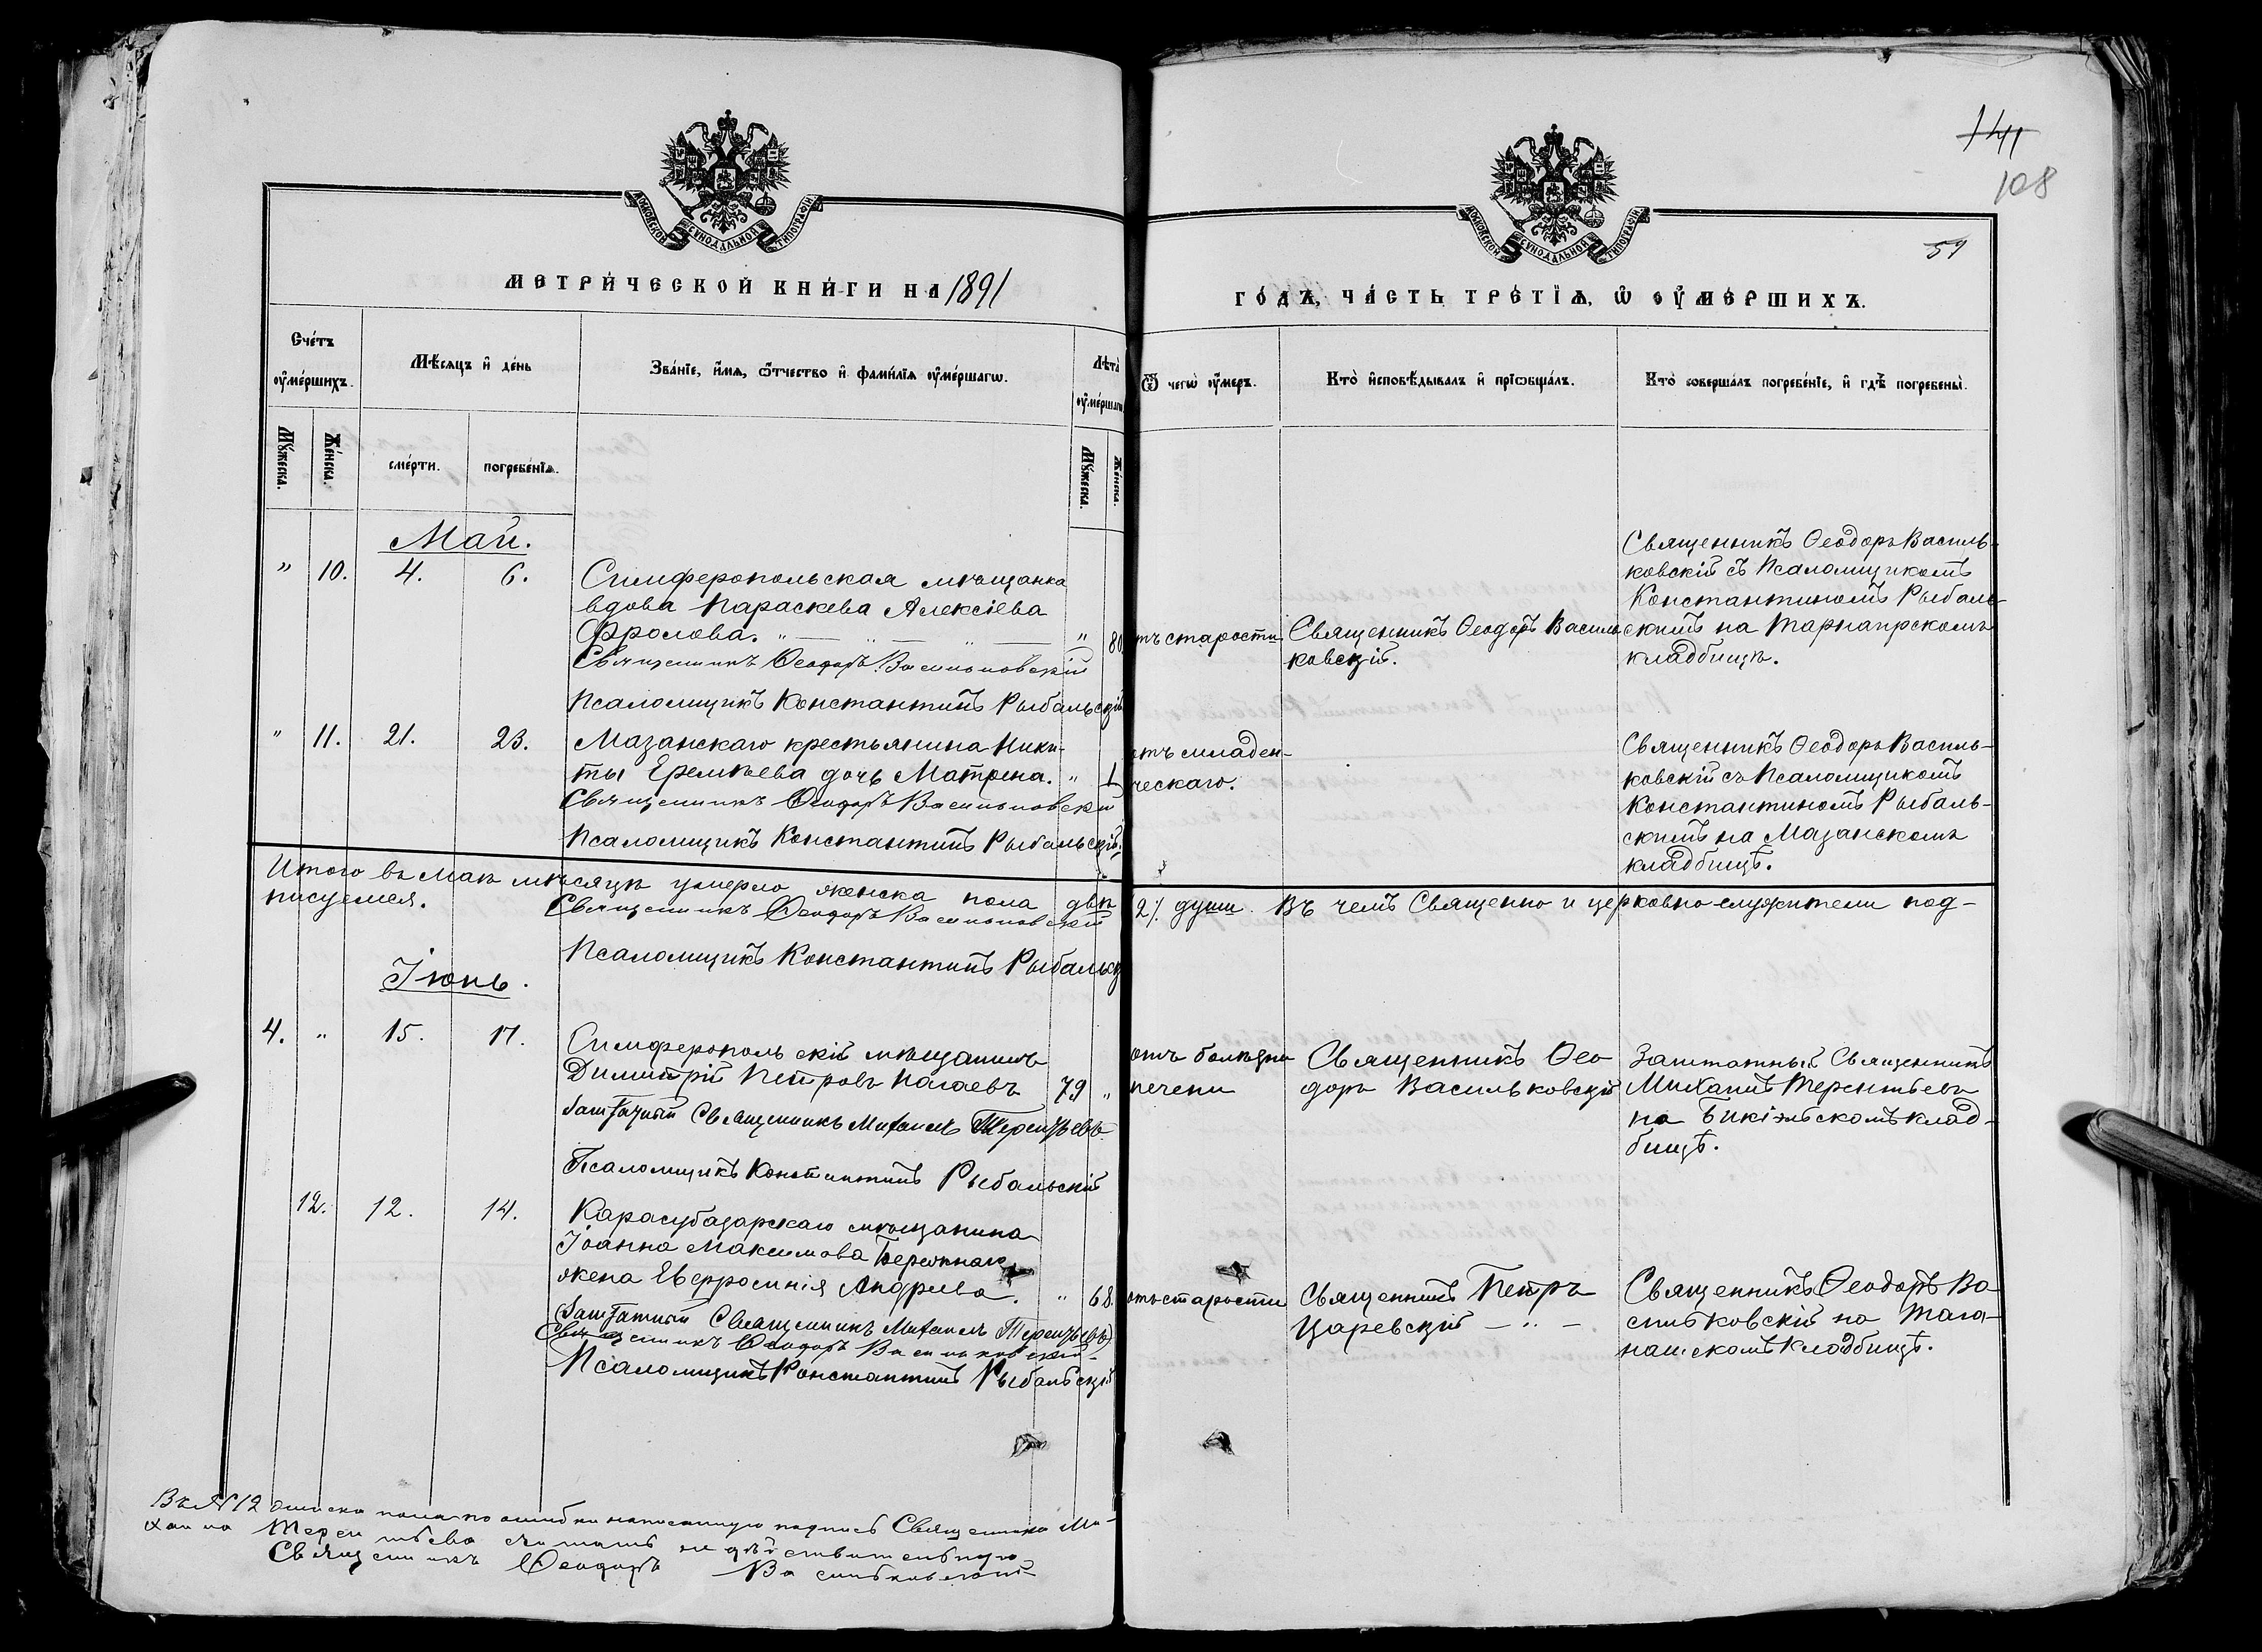 141
108
59
МОСКОВСКОЙ СѴНОДАЛЬНОЙ ТИПОГРАФІИ
МОСКОВСКОЙ СѴНОДАЛЬНОЙ ТИПОГРАФІИ
МЕТРИ́ЧЕСКОЙ КНИ́ГИ НА 1891
ГО́ДЪ, ЧА́СТЬ ТРЕ́ТІѦ, Ѡ҆ ОУ҆МЕ́РШИХЪ.
Сче́тъ оу҆ме́ршихъ.
Мѣ́сяцъ и҆ де́нь
Зва́нїе, и҆́мѧ, ѻ҆́тчество и҆ фами́лїѧ оу҆ме́ршагѡ.
Лѣ́та оу҆ме́ршагѡ
Ѿ чегѡ̀ оу҆́меръ.
Кто̀ и҆сповѣ́дывалъ и҆ прїѡбща́лъ.
Кто̀ соверша́лъ погребе́нїе, и҆ гдѣ̀ погребены̀.
Мꙋ́жеска.
Же́нска.
сме́рти.
погребе́нїѧ.
Мꙋ́жеска.
Же́нска.
Май.
" 10. 4. 6.
Симферопольская мѣщанка
вдова Параскева Алексіева
Фролова. " 80
Священникъ Ѳеодоръ Васильковскій
Псаломщикъ Константинъ Рыбальскій
отъ старости
Священникъ Ѳеодоръ Василь-
ковскій.
Священникъ Ѳеодоръ Василь-
ковскій съ Псаломщикомъ
Константиномъ Рыбаль-
скимъ на
кладбищѣ.
" 11. 21. 23.
Мазанскаго крестьянина Ники-
ты Еремѣева дочь Матрена. " 1
Священникъ Ѳеодоръ Васильковскій
Псаломщикъ Константинъ Рыбальскій.
отъ младен-
ческаго.
Священникъ Ѳеодоръ Василь-
ковскій съ Псаломщикомъ
Константиномъ Рыбаль-
скимъ на Мазанскомъ
кладбищѣ.
Итого въ маѣ мѣсяцѣ умерло женска пола двѣ /2/. души. Въ чемъ Священно и церковно-служители под-
писуемся.
Священникъ Ѳеодоръ Васильковскій
Псаломщикъ Константинъ Рыбальск
Іюнь.
4. " 15. 17.
Симферопольскій мѣщанинъ
Димитрій Петровъ Нагаевъ 79 "
Заштатный Священникъ Михаилъ Терентьевъ
Псаломщикъ Константинъ Рыбальскій
отъ болѣзни
печени
Священникъ Ѳео-
доръ Васильковскій
Заштатный Священникъ
Михаилъ Терентьевъ
на клад-
бищѣ.
12. 12. 14.
Карасубазарскаго мѣщанина
Іоанна Максимова
жена Евфросинія Андреева. " 68.
Заштатный Священникъ Михаилъ Терентьевъ
Священникъ Ѳеодоръ Васильковскій
Псаломщикъ Константинъ Рыбальскій
отъ старости
Священникъ Петръ
Царевскій
Священникъ Ѳеодоръ Ва-
сильковскій на Тага-
нашскомъ кладбищѣ.
Въ № 12 женска пола по ошибкѣ написанную подпись Священника Ми-
хаила Терентьева считать не дѣйствительною
Священникъ Ѳеодоръ Васильковскій